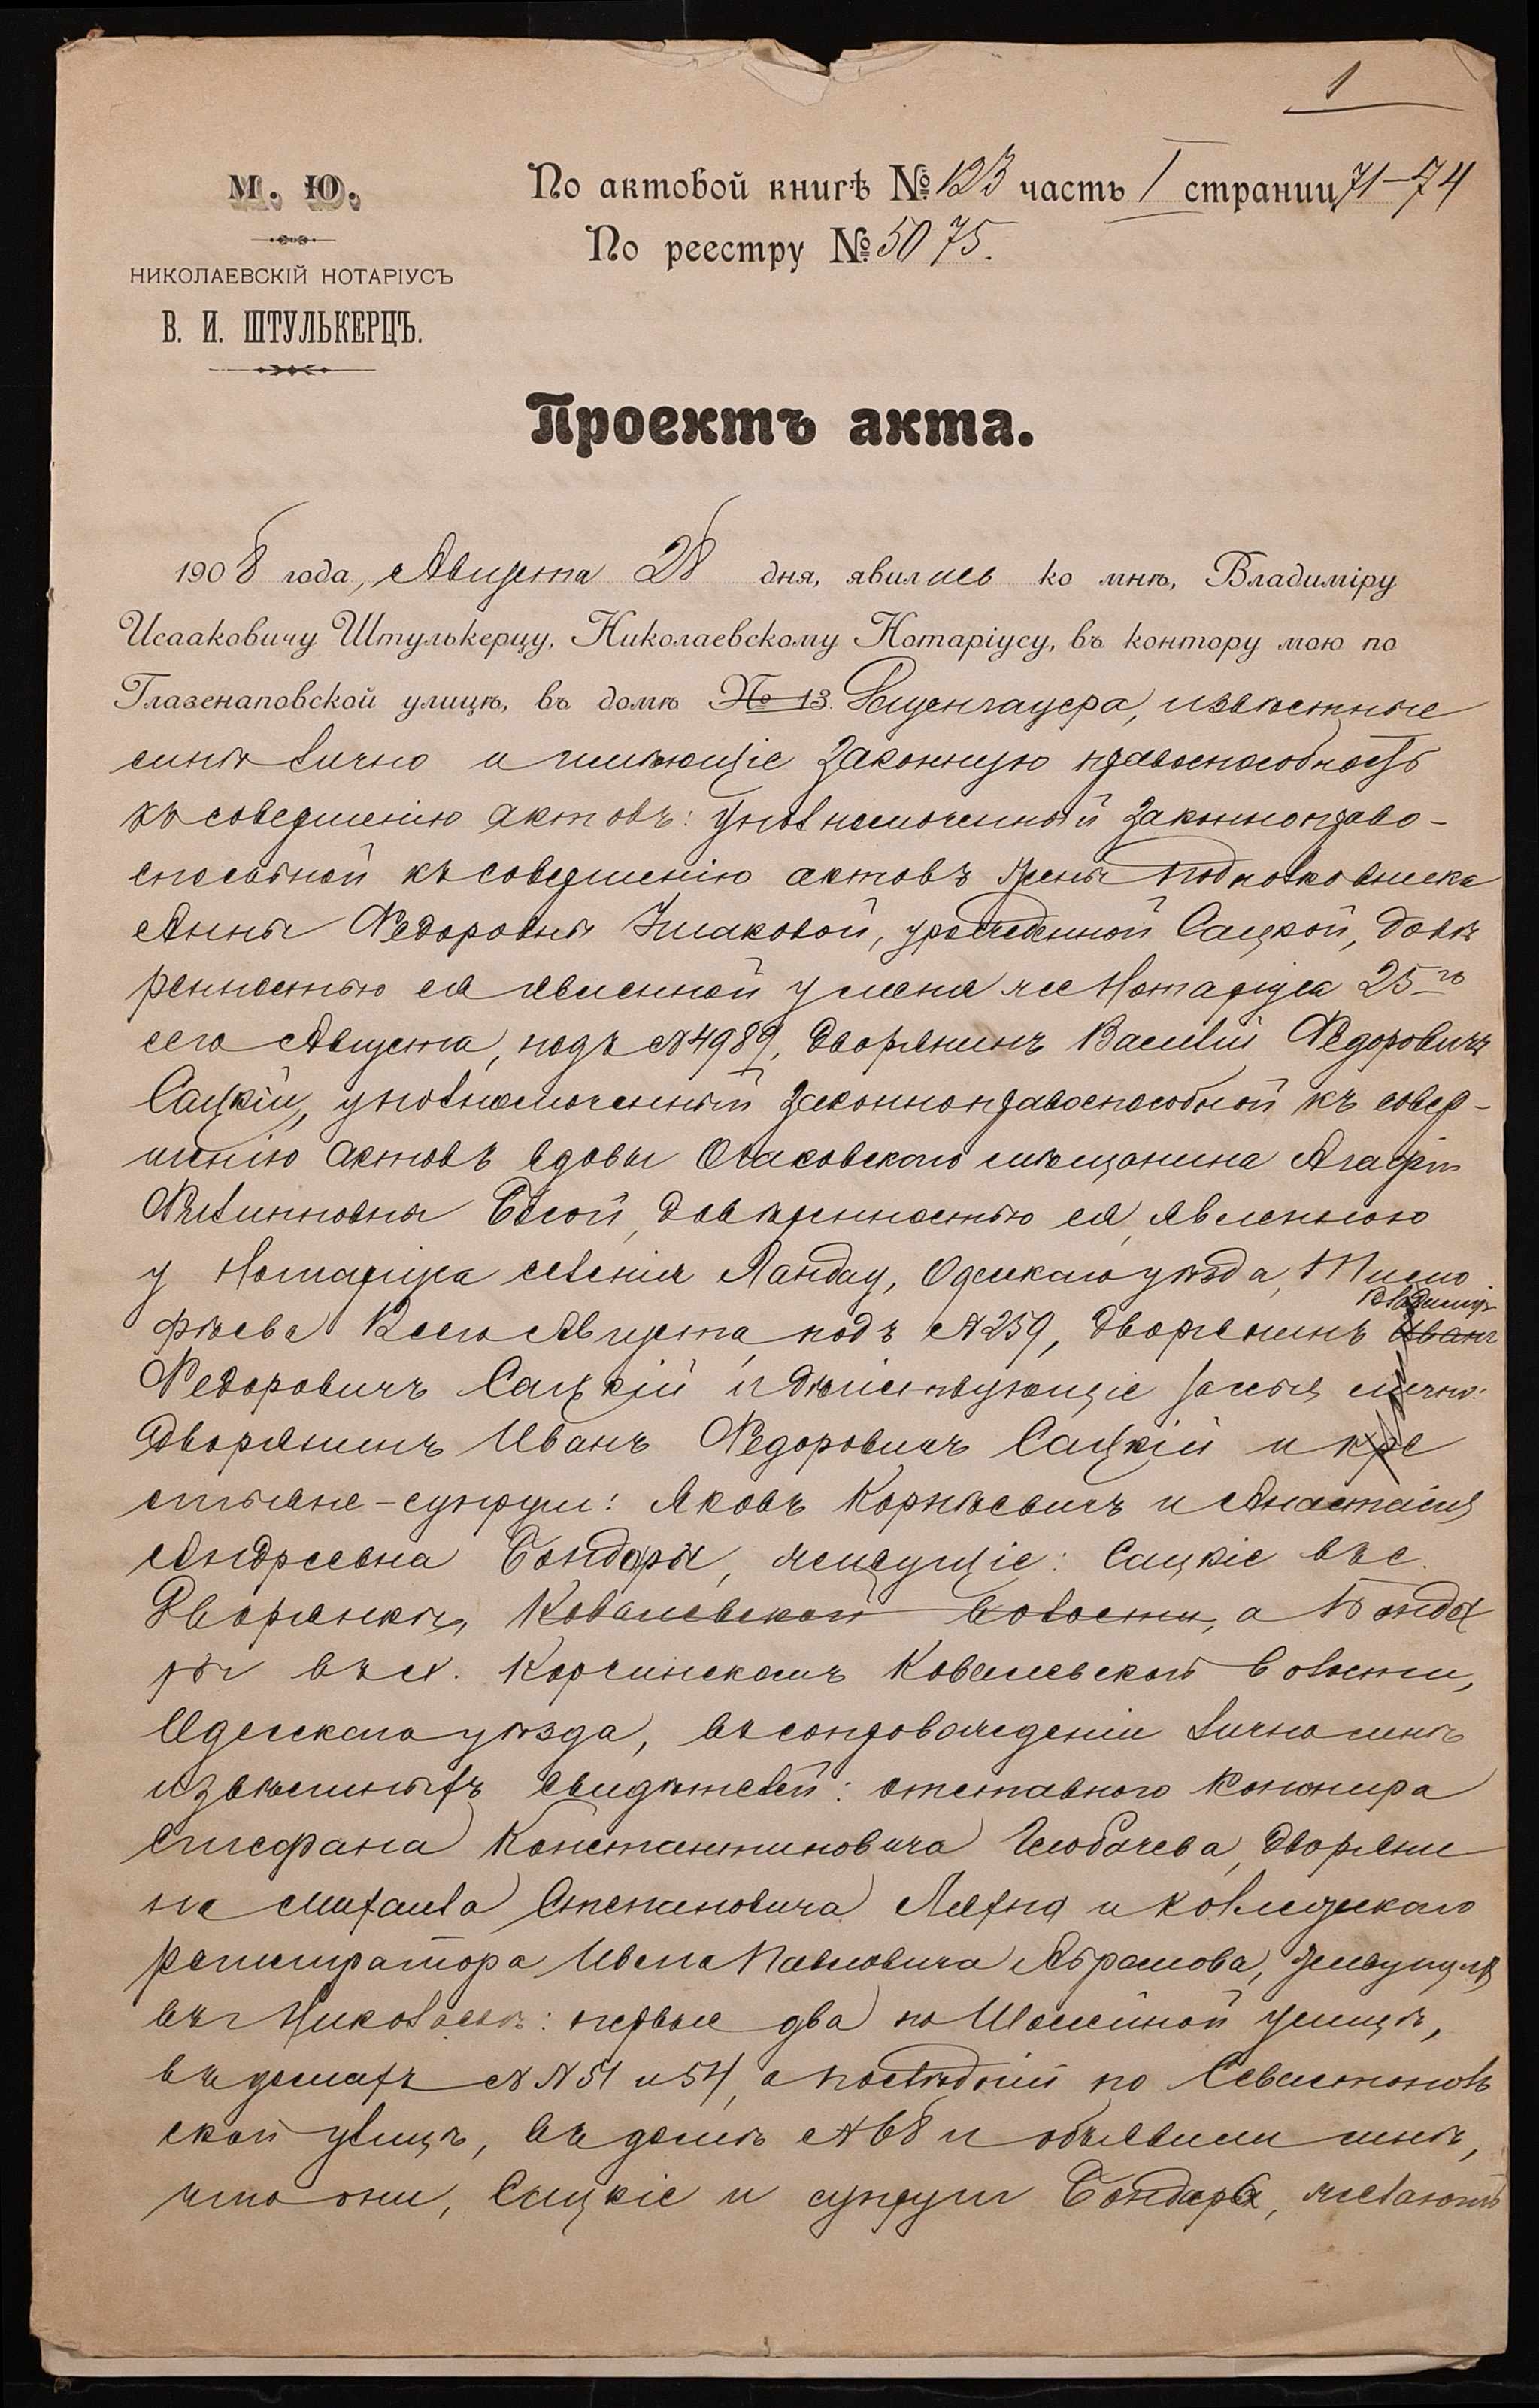 1
М. Ю.
НИКОЛАЕВСКІЙ НОТАРІУСЪ
В. И. ШТУЛЬКЕРЦЪ.
По актовой книгѣ № 123 часть I страниц 71–74
По реестру № 5075.
Проектъ акта.
1908 года, Августа 28 дня, явились ко мнѣ, Владиміру
Исааковичу Штулькерцу, Николаевскому Нотаріусу, въ контору мою по
Глазенаповской улицѣ, въ домѣ № 13. извѣстные
мнѣ лично и имѣющіе законную правоспособность
къ совершенію актовъ: уполномоченный законноправо-
способной къ совершенію актовъ жены Подполковника
Анны Федоровны урожденной Сацкой, довѣ
ренностью ея явленной у меня же Нотаріуса 25го
сего Августа, подъ № 4989, дворянинъ Василій Федоровичъ
Сацкій, уполномоченный законноправоспособной къ совер-
шенію актовъ вдовы Очаковского мѣщанина Агафіи
довѣренностью ея, явленною
у Нотаріуса селенія Ландау, Одесскаго уѣзда, Тимо
Владиміръ
фѣева сего Августа, подъ № 259, дворянинъ Иванъ
Федоровичъ Сацкій и дѣйствующіе за себя лично:
дворянинъ Иванъ Федоровичъ Сацкій и кре
стьяне-супруги: Яковъ Корнѣевичъ и Анастасія
Андреевна Бондарь, живущіе: Сацкіе въ с.
Дворянкѣ, Ковалевской волости, а Бонда
ры въ х. Корчинскомъ Ковалевской волости,
Одесскаго уѣзда, въ сопровожденіи лично мнѣ
извѣстныхъ свидѣтелей: отставного
Стефана Константиновича дворяни
на Михаила Степановича и коллежскаго
регистратора Ивана Павловича Абрамова, живущихъ
въ г. Николаевѣ: первые два по улицѣ,
въ домахъ №№ 51 и 54, а послѣдній по Севастополь
ской улицѣ, въ домѣ № 68 и объявили мнѣ,
что они, Сацкіе и супруги Бондарь, желаютъ